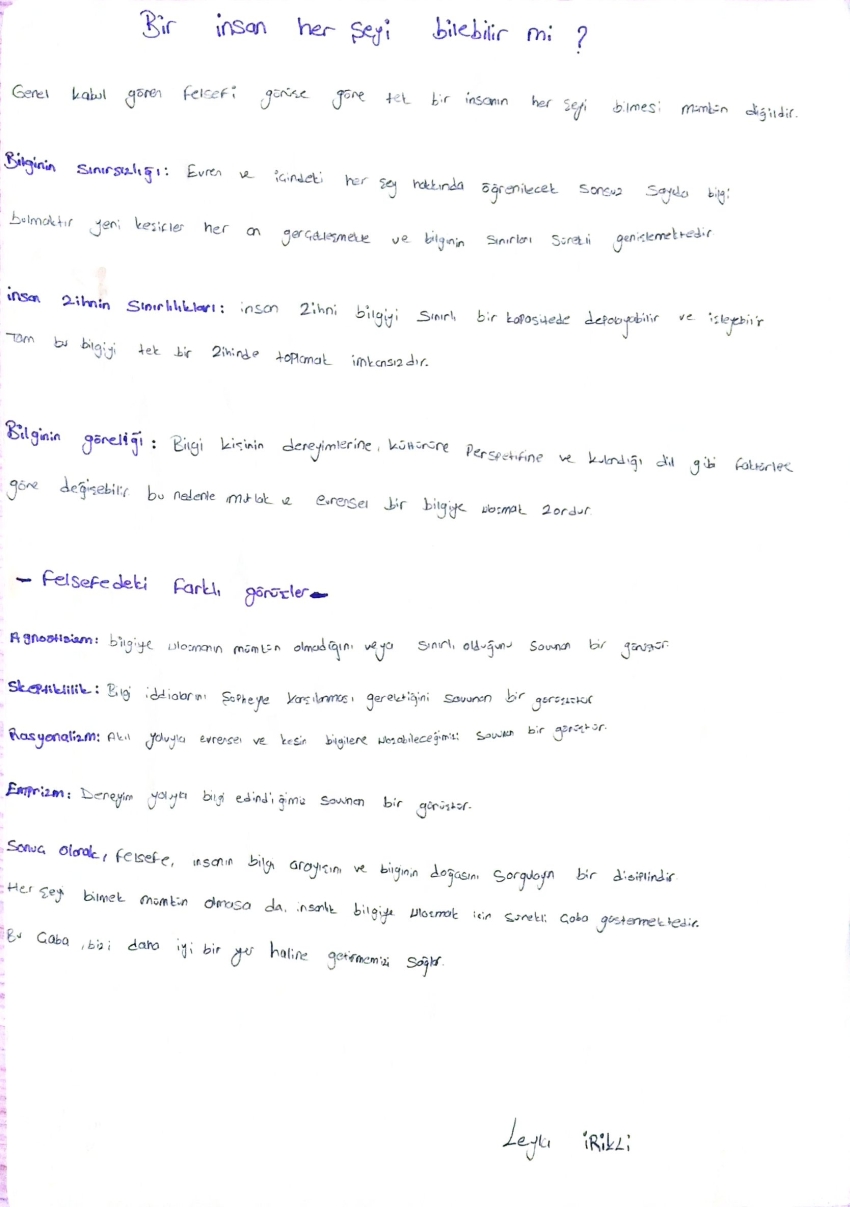 Bir insan her şeyi bilebilir mi ?
Genel kabul gören felsefi görüşe göre tek bir insanın her şeyi bilmesi mümkün diğildir.
Bilginin sınırsızlığı: Evren ve içindeki her şey hakkında öğrenilecek sonsuz sayıda bilgi
bulmaktır yeni kesifler her an gerçekleşmekte ve bilginin sınırları sürekli genişlemektedir
insan zihnin sınırlılıkları: insan zihni bilgiyi sınırlı bir kapasitede depolayabilir ve işleyebilir
Tam bu bilgiyi tek bir zihinde toplamak imkansızdır.
Bilginin göreliği: Bilgi kişinin deneyimlerine, kültürüne Perspektifine ve kulandığı dil gibi faktörlere
göre değişebilir bu nedenle mutlak ve evrensel bir bilgiye ulaşmak zordur.
- Felsefedeki farklı görüşler -
Agnostisizm: bilgiye ulaşmanın mümkün olmadığını veya sınırlı olduğunu savunan bir görüştür.
Skeptiklilik: Bilgi iddialarını şüpheyle karşılanması gerektiğini savunan bir görüştür
Rasyonalizm: Akıl yoluyla evrensel ve kesin bilgilere ulaşabileceğimizi savunan bir görüştür.
Emprizm: Deneyim yoluyla bilgi edindiğimiz savunan bir görüştür.
Sonuç olarak, felsefe, insanın bilgi arayışını ve bilginin doğasını sorgulayan bir disiplindir
Her şeyi bilmek mümkün olmasa da, insanlık bilgiye ulaşmak için sürekli çaba göstermektedir.
Bu çaba, bizi daha iyi bir yer haline getirmemizi sağlar.
Leyla İRİKLİ